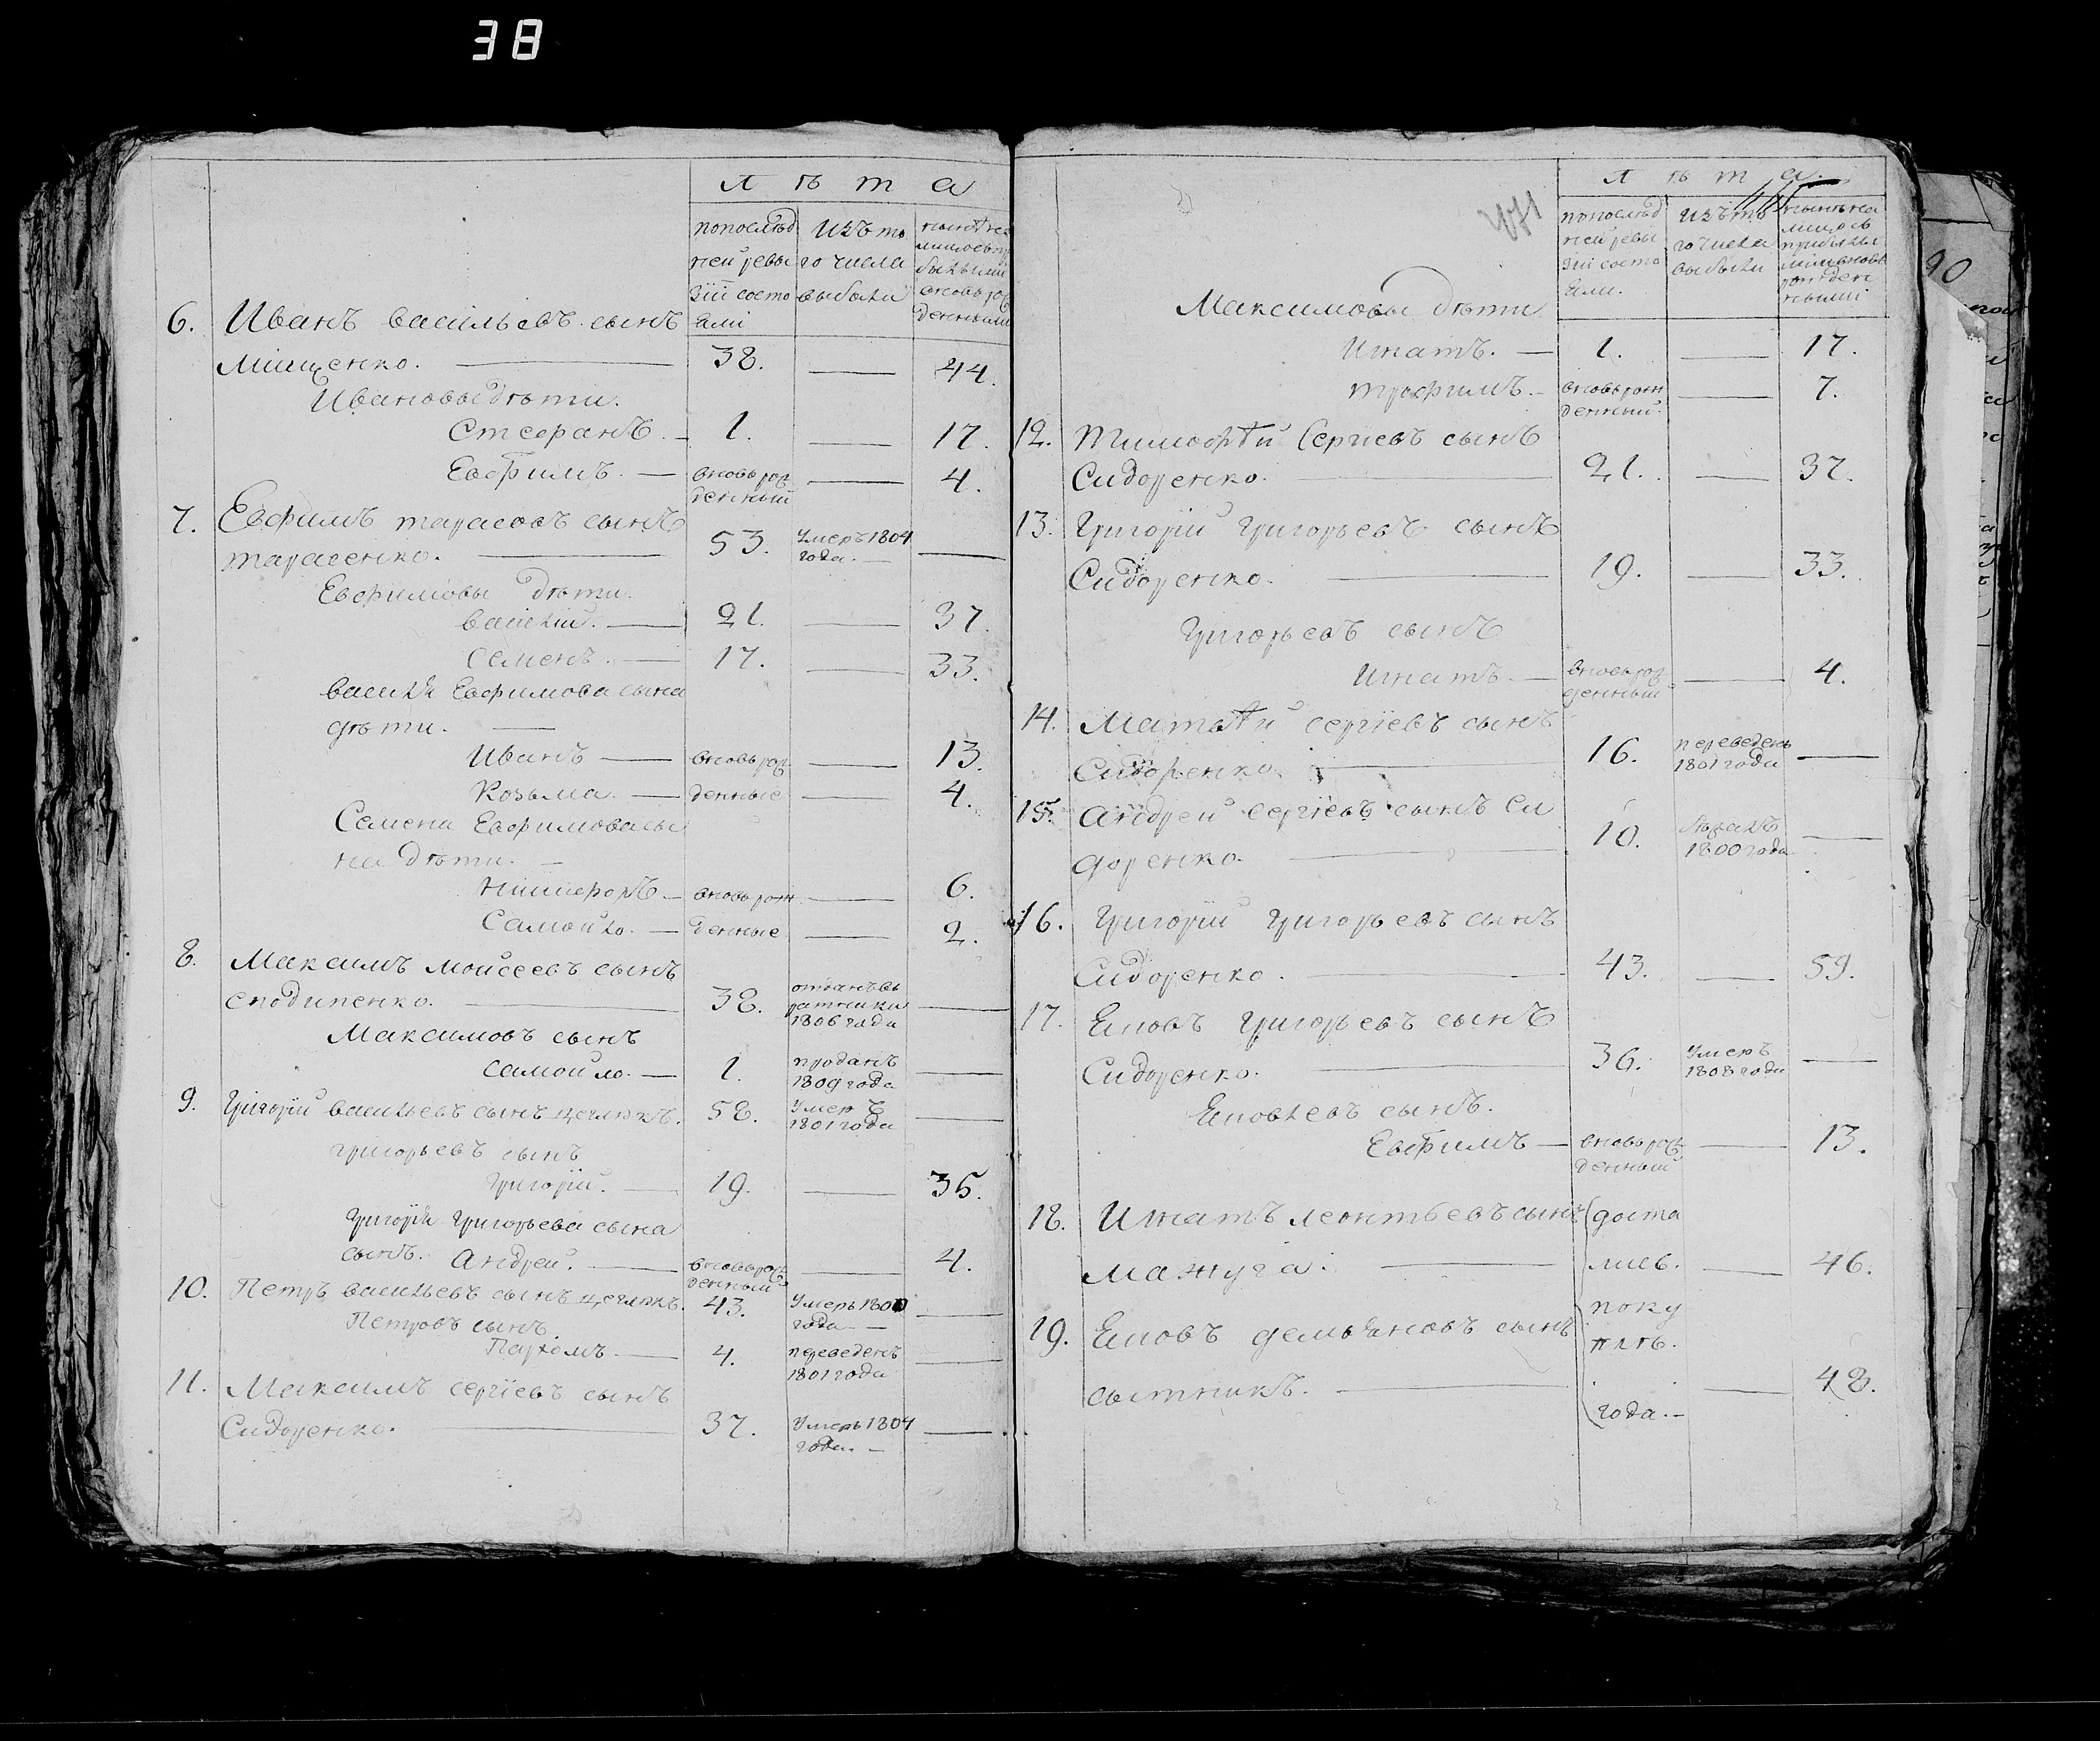 38
Л ѣ т а
попослѣд ней ревизіи состояли
изъ того числа выбыли
6. Иванъ васильевъ сынъ
Мищенко. 38. 44.
Ивановы дѣти.
Стефанъ. 1. 17.
Евфимъ. вновь рожденный 4.
7. Евфимъ тарасовъ сынъ
тарасенко. 53. Умеръ 1804 года.
Евфимовы дѣти.
василій. 21. 37.
семенъ. 17. 33.
василія Евфимова сына
дѣти.
Иванъ вновь рож 13.
Козьма. денные 4.
Семена Евфимова сы
на дѣти.
Никифоръ вновь рож 6.
Самойло. денные 2.
8. Максимъ мойсеевъ сынъ
сподипенко. 38. отданъ въ ратники 1806 года
Максимовъ сынъ
самойло. 1. проданъ 1809 года
9. Григорій васильевъ сынъ 58. Умеръ 1801 года
григорьевъ сынъ
Григорій. 19. 35.
Григорія Григорьева сына
сынъ. Андрей. вновь рожденный 4.
10. Петръ васильевъ сынъ 43. Умеръ 1800 года
Петровъ сынъ
Пархомъ. 4. переведенъ 1801 года
11. Максимъ сергіевъ сынъ
Сидоренко. 37. Умеръ 1804 года.
Л ѣ т а.
попослѣд ней ревизіи состояли.
изъ того числа выбыли
Максимовы дѣти
Игнатъ. 1. 17.
трофимъ. вновь рожденный. 7.
12. Тимофѣй Сергіевъ сынъ
Сидоренко. 21. 37.
13. Григорій григорьевъ сынъ
Сидоренко. 19. 33.
Григорьевъ сынъ
Игнатъ вновь рожденный 4.
14. Матвѣй сергіевъ сынъ
Сидоренко. 16. переведенъ 1801 года
15. Андрей сергіевъ сынъ Си
доренко. 10. 1800 года
16. Григорій григорьевъ сынъ
Сидоренко. 43. 59.
17. Еповъ григорьевъ сынъ
Сидоренко. 36. Умеръ 1808 года
Еповлевъ сынъ.
Евфимъ вновь рожденный 13.
18. Игнатъ леонтьевъ сынъ доста
мажуга. лис. 46.
поку
19. Еповъ демьяновъ сынъ пкѣ.
сытникъ. 48.
года.
90